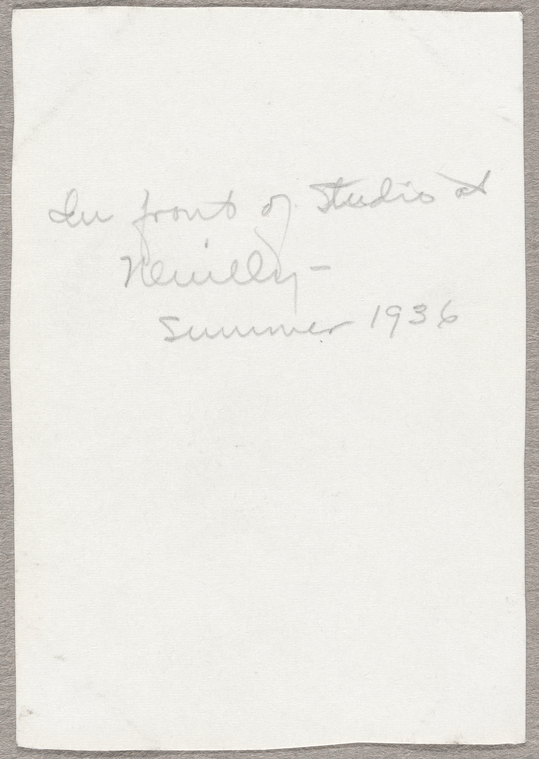 In front of Studio at
Neuilly -
Summer 1936